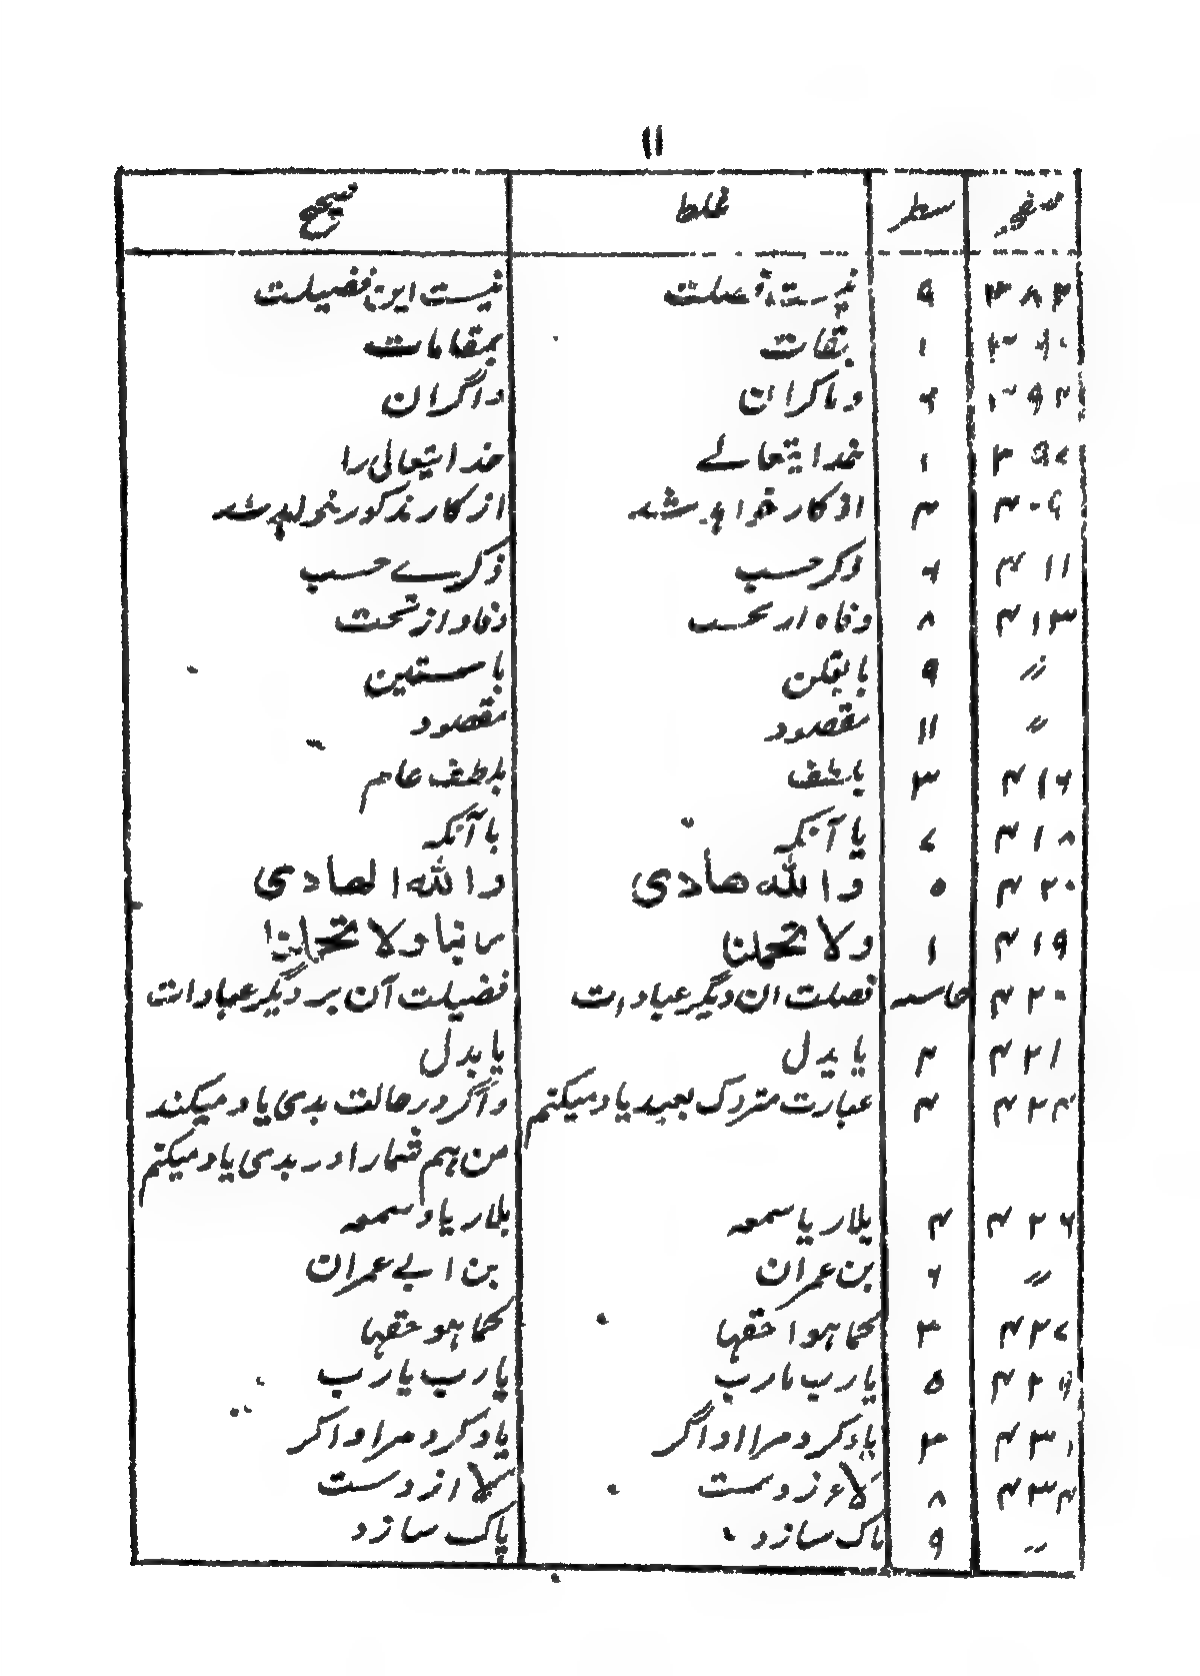 ۱۱
صفحہ سطر غلط صحیح
۳۸۳ ۹ نیست این فضیلت
۳۹۰ ۱ بتقات بمقامات
۳۹۲ ۶ وماکران واگران
۳۹۷ ۱ خدایتعالے خدایتعالی را
۴۰۶ ۴ ازکار خواہد شد ازکار مذکور نخواہد شد
۴۱۱ ۶ ذکر حسب ذکرے حسب
۴۱۳ ۸ وفاہ ار وفا و از تحت
〃 ۹ باستین
〃 ۱۱ مقصود مقصود
۴۱۶ ۳ بلطف عام
۴۱۸ ۷ یا آنکہ با آنکہ
۴۲۰ ۵ واللہ ھادی واللہ الھادی
۴۱۹ ۱ ولا تحملنا ربنا ولا تحملنا
۴۲۰ فصلت ان دیگر عبادات فضیلت آن بر دیگر عبادات
۴۲۱ ۲ یا یدل یا بدل
۴۲۴ ۴ عبارت متروک بعید یاد میکنم واگر در حالت بدی یاد میکنند
من ہم شمارا در بدی یاد میکنم
۴۲۶ ۴ یلار یاسمعہ بلار یا دسمعہ
〃 ۶ بن عمران بن ابے عمران
۴۲۷ ۳ کما ہوا حقہا کما ہو حقہا
۴۲۹ ۵ یارب مارب یارب یارب
۴۳۱ ۳ یادکرد مرا اواگر یادکرد مرا واگر
۴۳۴ ۸ دست از دست
〃 ۹ ناک سازد پاک سازد